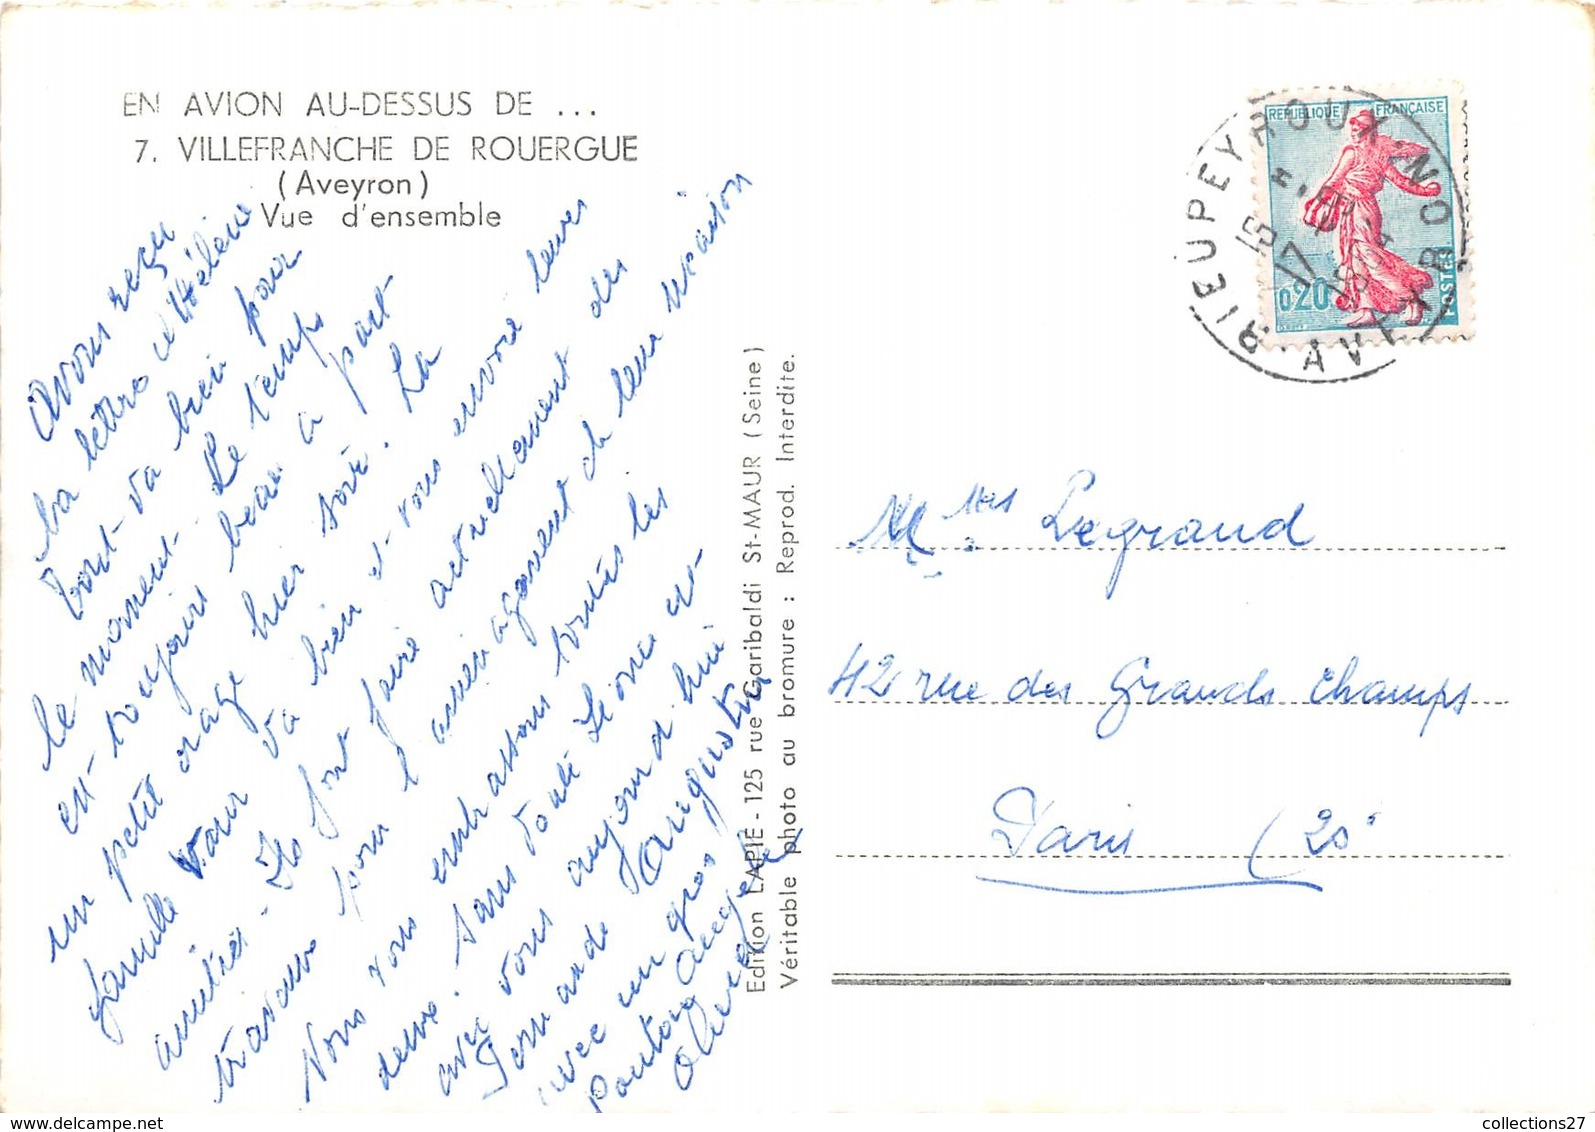 EN AVION AU-DESSUS DE ...
7. VILLEFRANCHE DE ROUERGUE
(Aveyron)
Vue d'ensemble
Avons reçu
la lettre d'Hélène
tout va bien pour
le moment. Le temps
est toujours beau à part
un petit orage hier soir. La
famille Vaur va bien et vous envoie leurs
amitiés. Ils font faire actuellement des
travaux pour l'aménagement de leur maison
Nous vous embrassons toutes les
deux. Sans doute Léonce est
avec vous aujourd'hui
Fernande Augustin
avec un gros
Edition LAPIE - 125 rue Garibaldi St-MAUR (Seine)
Véritable photo au bromure : Reprod. Interdite.
REPUBLIQUE FRANÇAISE
0.20
POSTES
RIEUPEYROUX
AVEYRON
Mmes Legrand
42 rue des Grands Champs
Paris (20e
collections27